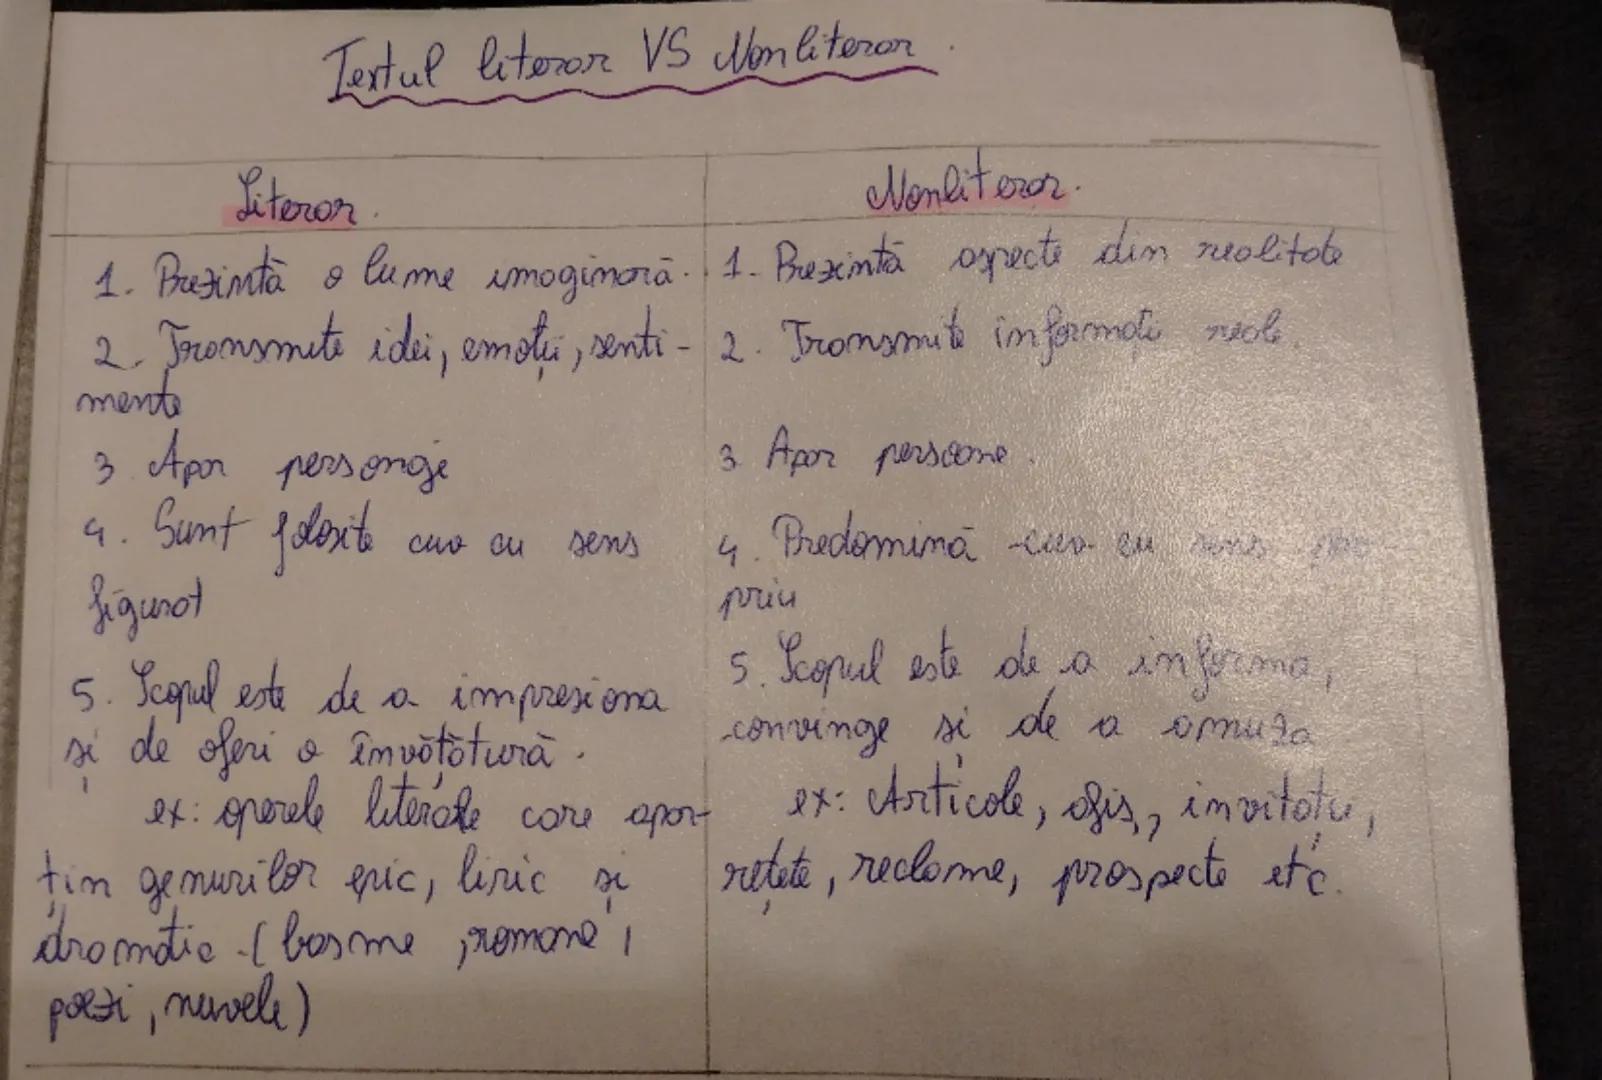 Textul literar VS Nonliterar.
Literar.
1. Prezintă o lume imaginară.
2. Transmite idei, emoții, senti-
mente
3. Apar personaje
4. Sunt folosite cuv cu sens
figurat
5. Scopul este de a impresiona
și de oferi o învățătură.
ex: operele literale care apar-
țin genurilor epic, liric și
dramatic (basme, romane,
poezi, nuvele)
Nonliterar.
1. Prezintă aspecte din realitate
2. Transmite informați reale.
3. Apar persoane.
4. Predomină cuv cu sens pro
priu
5. Scopul este de a informa,
convinge și de a amuza
ex: Articole, afiș, invitați,
rețete, reclame, prospecte etc.